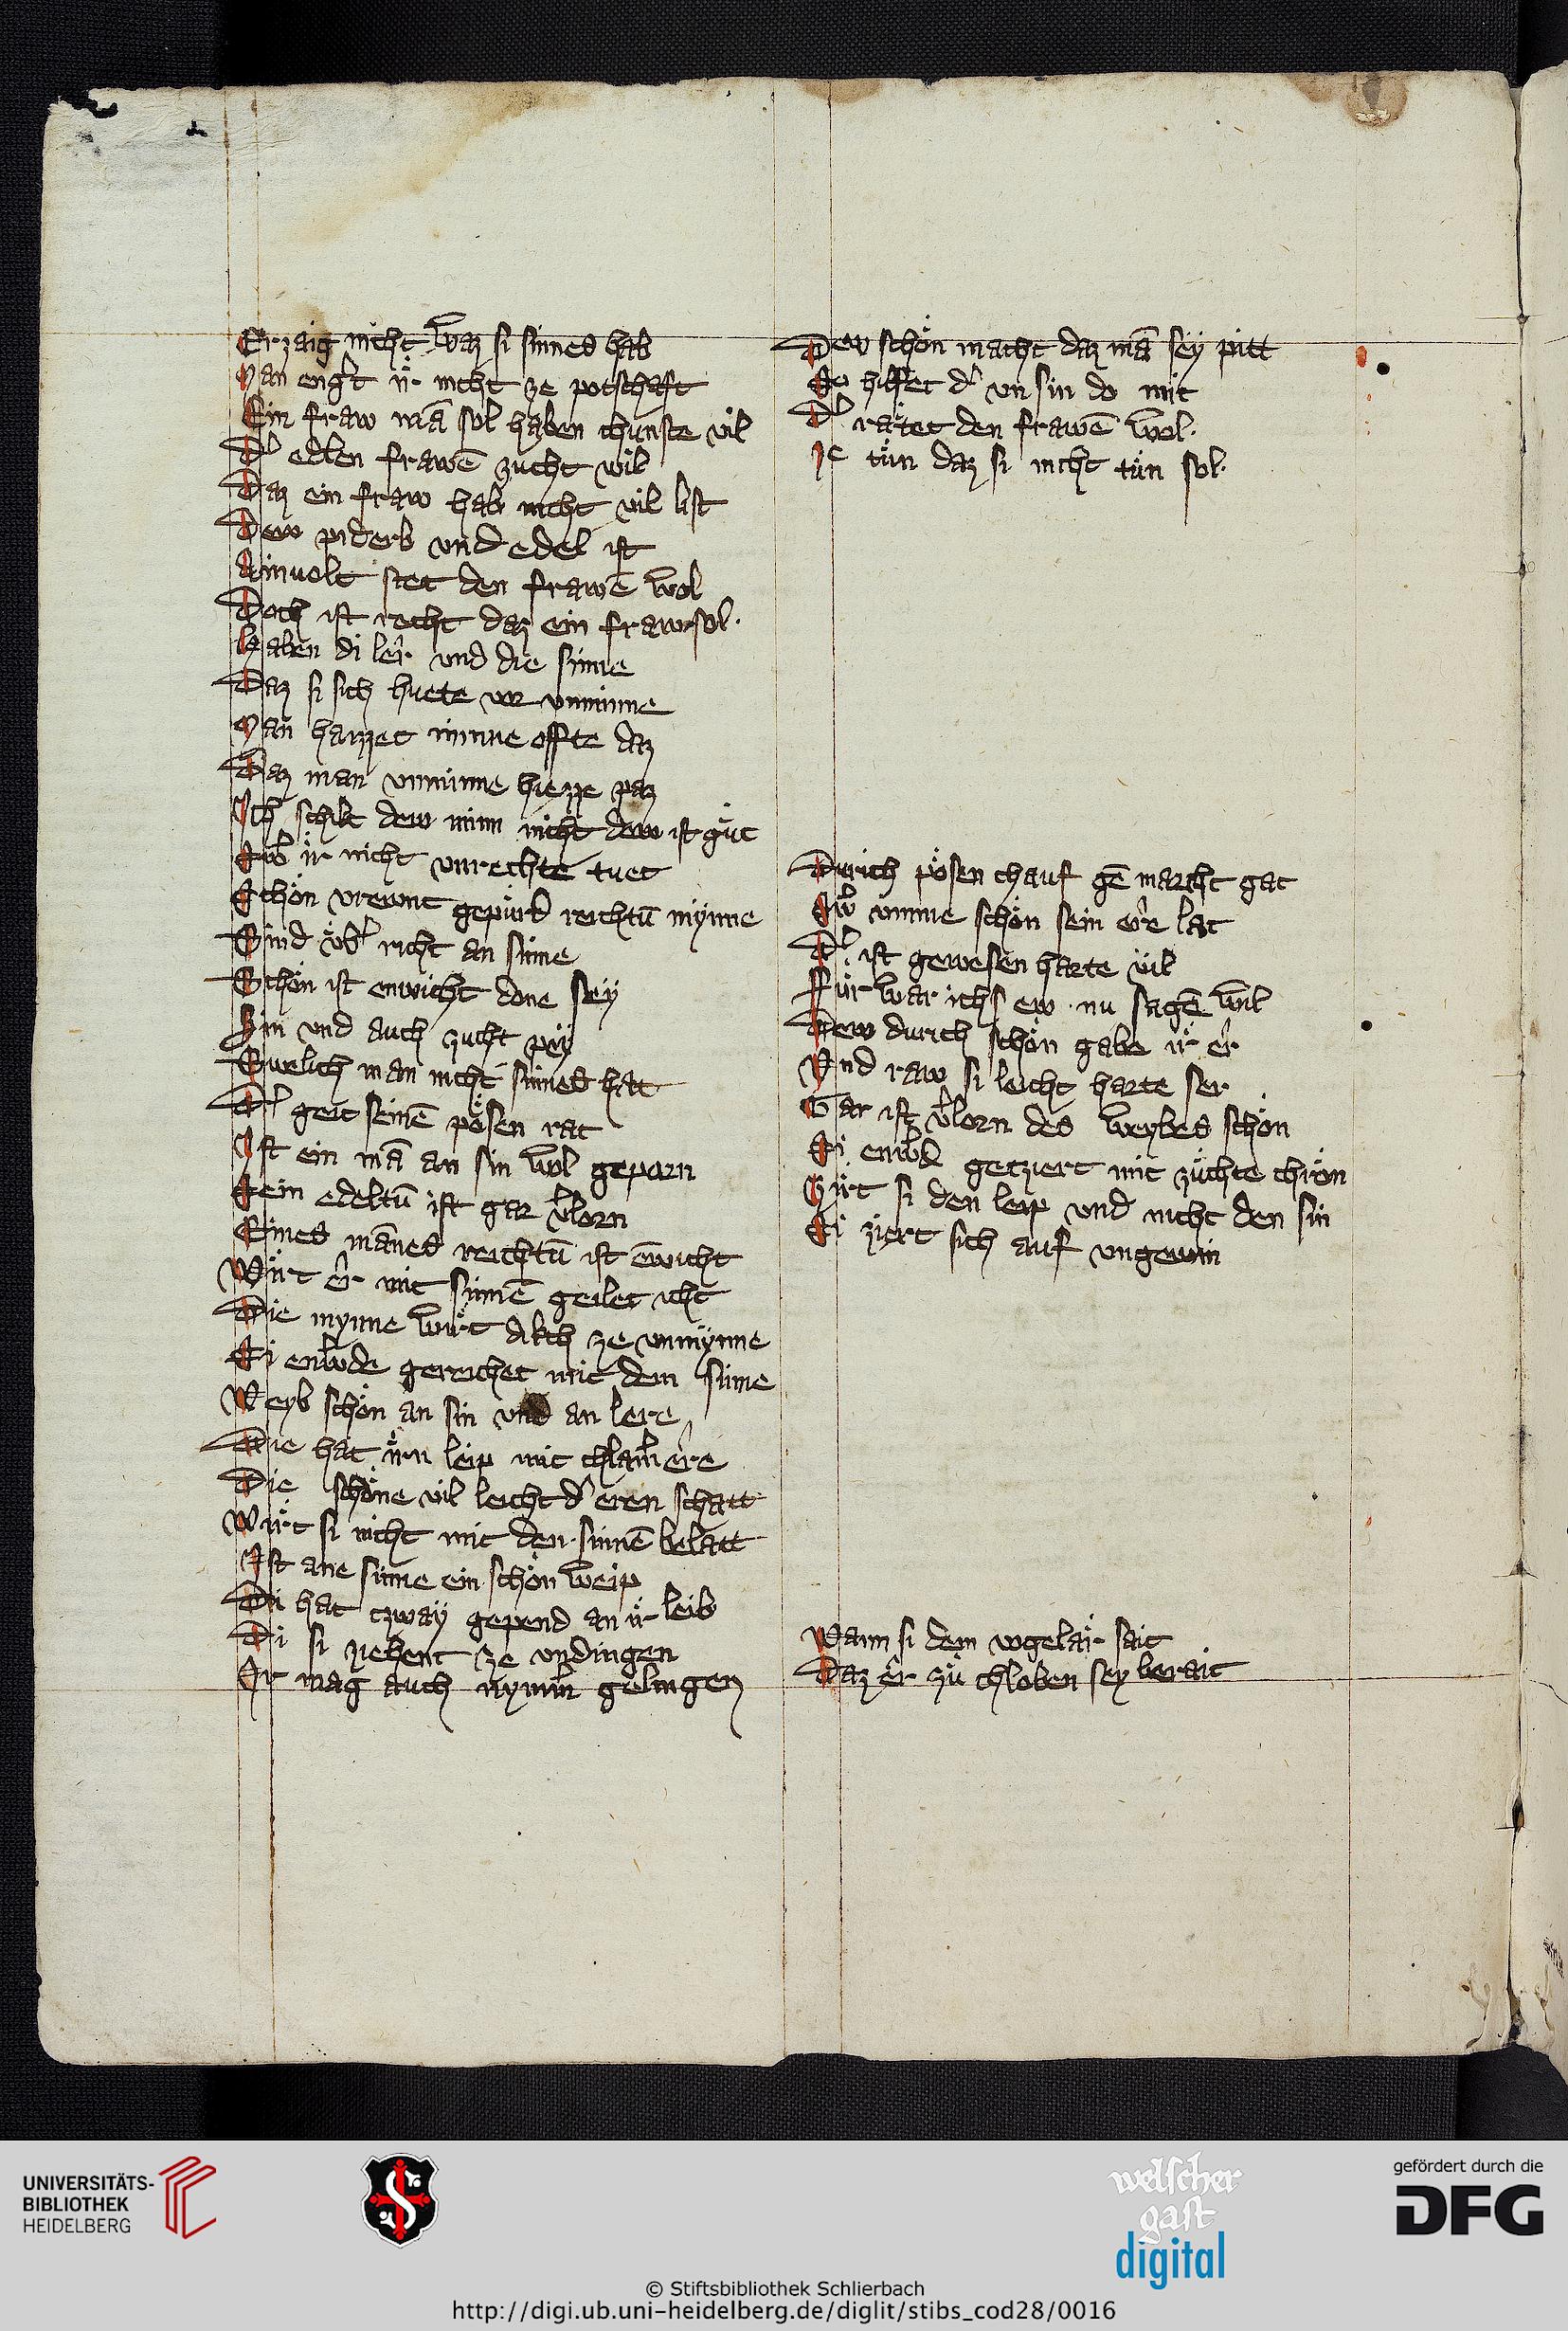 Erzaig nicht waz si sinnes hab
Man eng͛t ir nicht ze potschaft
Ein fraw mā sol haben chunste vil
D͛ edlen frawē zucht wil
Daz ein fraw hab nicht vil list
Dew piderb vnd edel ist
Ainuolt stet den frawē wol
Doch ist recht daz ein fraw sol·
Haben di ler vnd die sinne
Daz si sich huete vor vnminne
Man haizzet minne offte daz
Daz man vnminne hiezze paz
Ich schilt dew minn nicht dew ist gůt
Sw͛ ir nicht vnrechte tuet
Schön vrewnt gepurd reichtū mynne
Sind vb͛ richt an sinne
Schön ist enwicht done sey
Sin vnd auch zucht pey
Swelich man nicht sinnes hat
D͛ geit seinē pösen rat
Ist ein mā an sin wol geporn
Sein edeltū ist gar v͛lorn
Eines mānes reichtū ist ēwicht
Wirt er mit sinnē geilet icht
Die mynne wirt dikch ze vnmynne
Si enw͛de gereichet mit dem sinne
Weyb schön an sin vnd an lere
Die hat irn leip mit chlain͛ ere
Die schöne vil leicht d͛ eren schatt
Wirt si nicht mit den sinnē belatt
Ist ane sinne ein schön weip
Di hat zway gepend an ir leib
Di si ziehent ze vndingen
Ir mag auch nym͛ gelingen
Dew schön macht daz mā sey pitt
So hilffet d͛ vn sin do mit
D͛ ratet den frawē wol·
Ze tün daz si nicht tün sol·
Durich pösen chauf gē marcht gat
Sw͛ vmme schön sein ere lat
D͛ ist gewesen harte vil
Für war ichs ew nu sagē wil
Dew durich schön gabe ir er
Vnd raw si leicht harte ser
Gar ist v͛lorn des weybes schön
Si enw͛d getziert mit züchte chrön
Zirt si den leip vnd nicht den sin
Si ziert sich auf vngewin
Wann si dem vogelair sait
Daz er zů chloben sey berait
UNIVERSITÄTS-
BIBLIOTHEK
HEIDELBERG
welscher
gast
digital
gefördert durch die
DFG
© Stiftsbibliothek Schlierbach
http://digi.ub.uni-heidelberg.de/diglit/stibs_cod28/0016